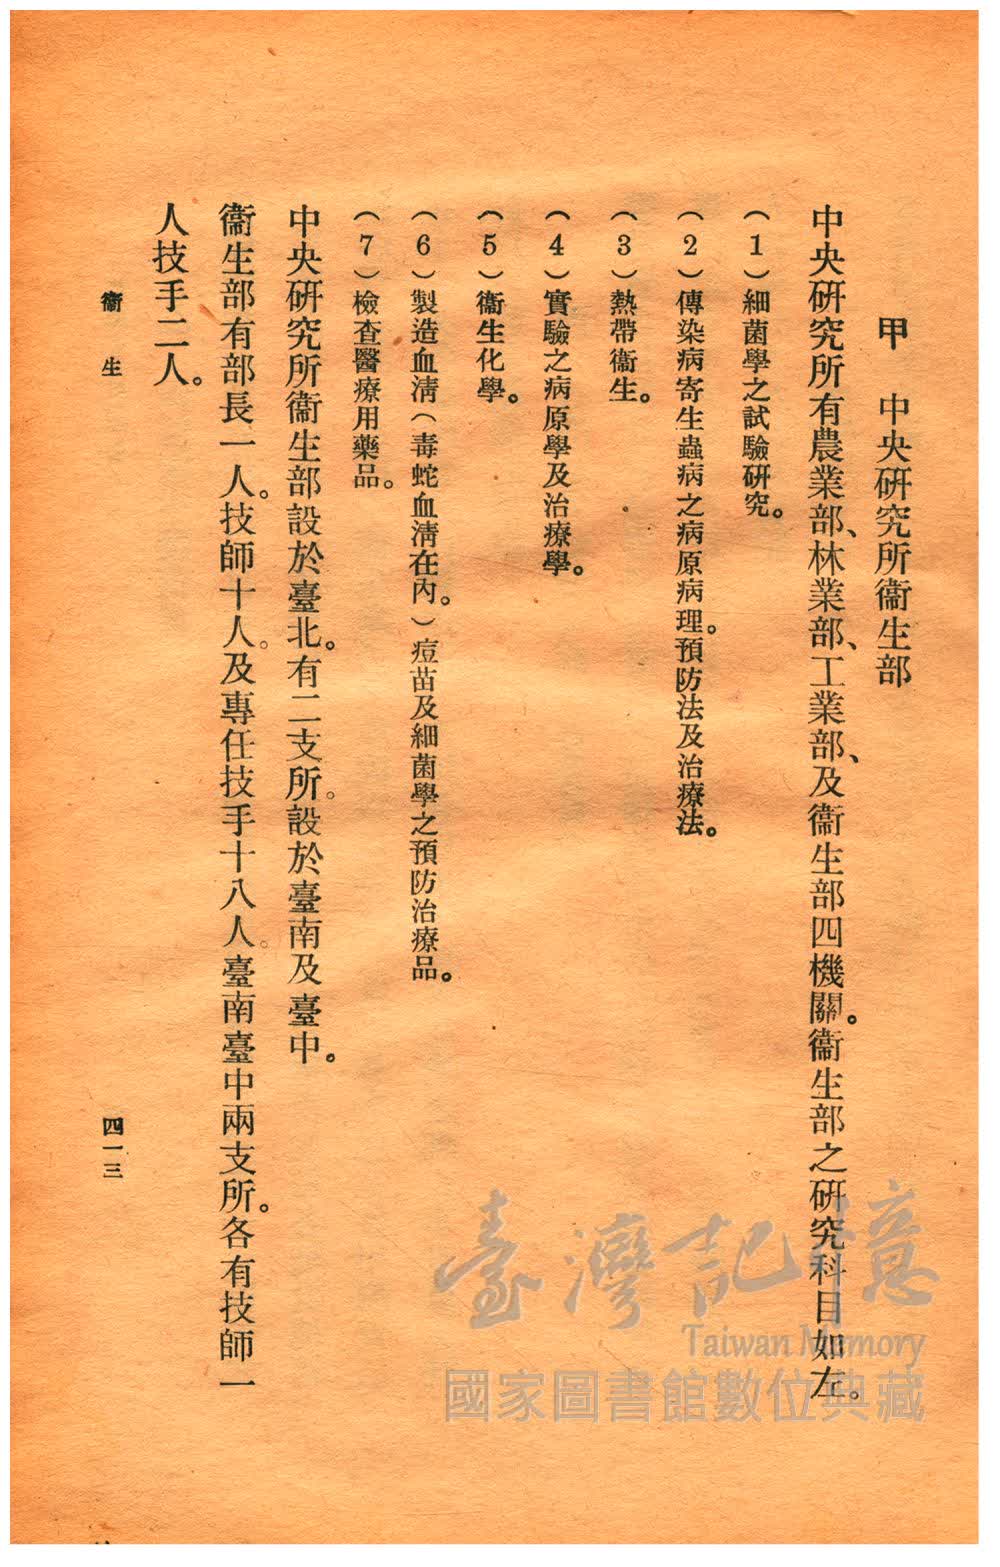 甲　中央研究所衞生部
中央研究所有農業部、林業部、工業部、及衞生部四機關。衞生部之研究科目如左。
（1）細菌學之試驗研究。
（2）傳染病寄生蟲病之病原病理。預防法及治療法。
（3）熱帶衞生。
（4）實驗之病原學及治療學。
（5）衞生化學。
（6）製造血淸（毒蛇血淸在內。）痘苗及細菌學之預防治療品。
（7）檢查醫療用藥品。
中央研究所衞生部設於臺北。有二支所。設於臺南及臺中。
衞生部有部長一人。技師十人。及專任技手十八人。臺南臺中兩支所。各有技師一
人技手二人。
衞生
四一三
臺灣記憶
Taiwan Memory
國家圖書館數位典藏